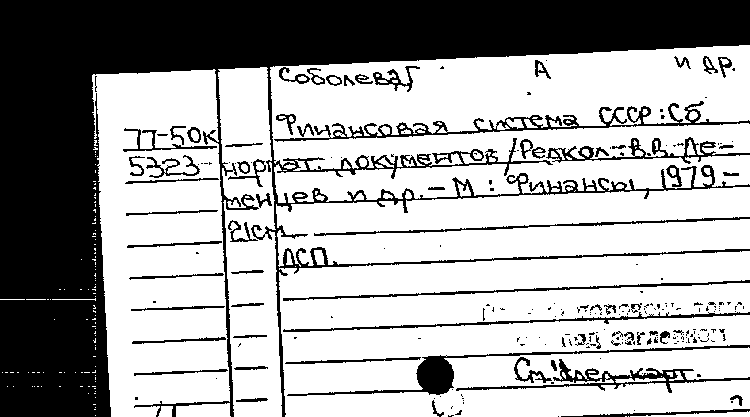 Соболева, Г А и др.
Финансовая система СССР: Сб.
77-50к
5323- нормат. документов / Редкол.: В.В. Де-
менцев и др. - М : Финансы, 1979.-
21см.
ДСП.
перечень
под заглавием
См. след. карт.